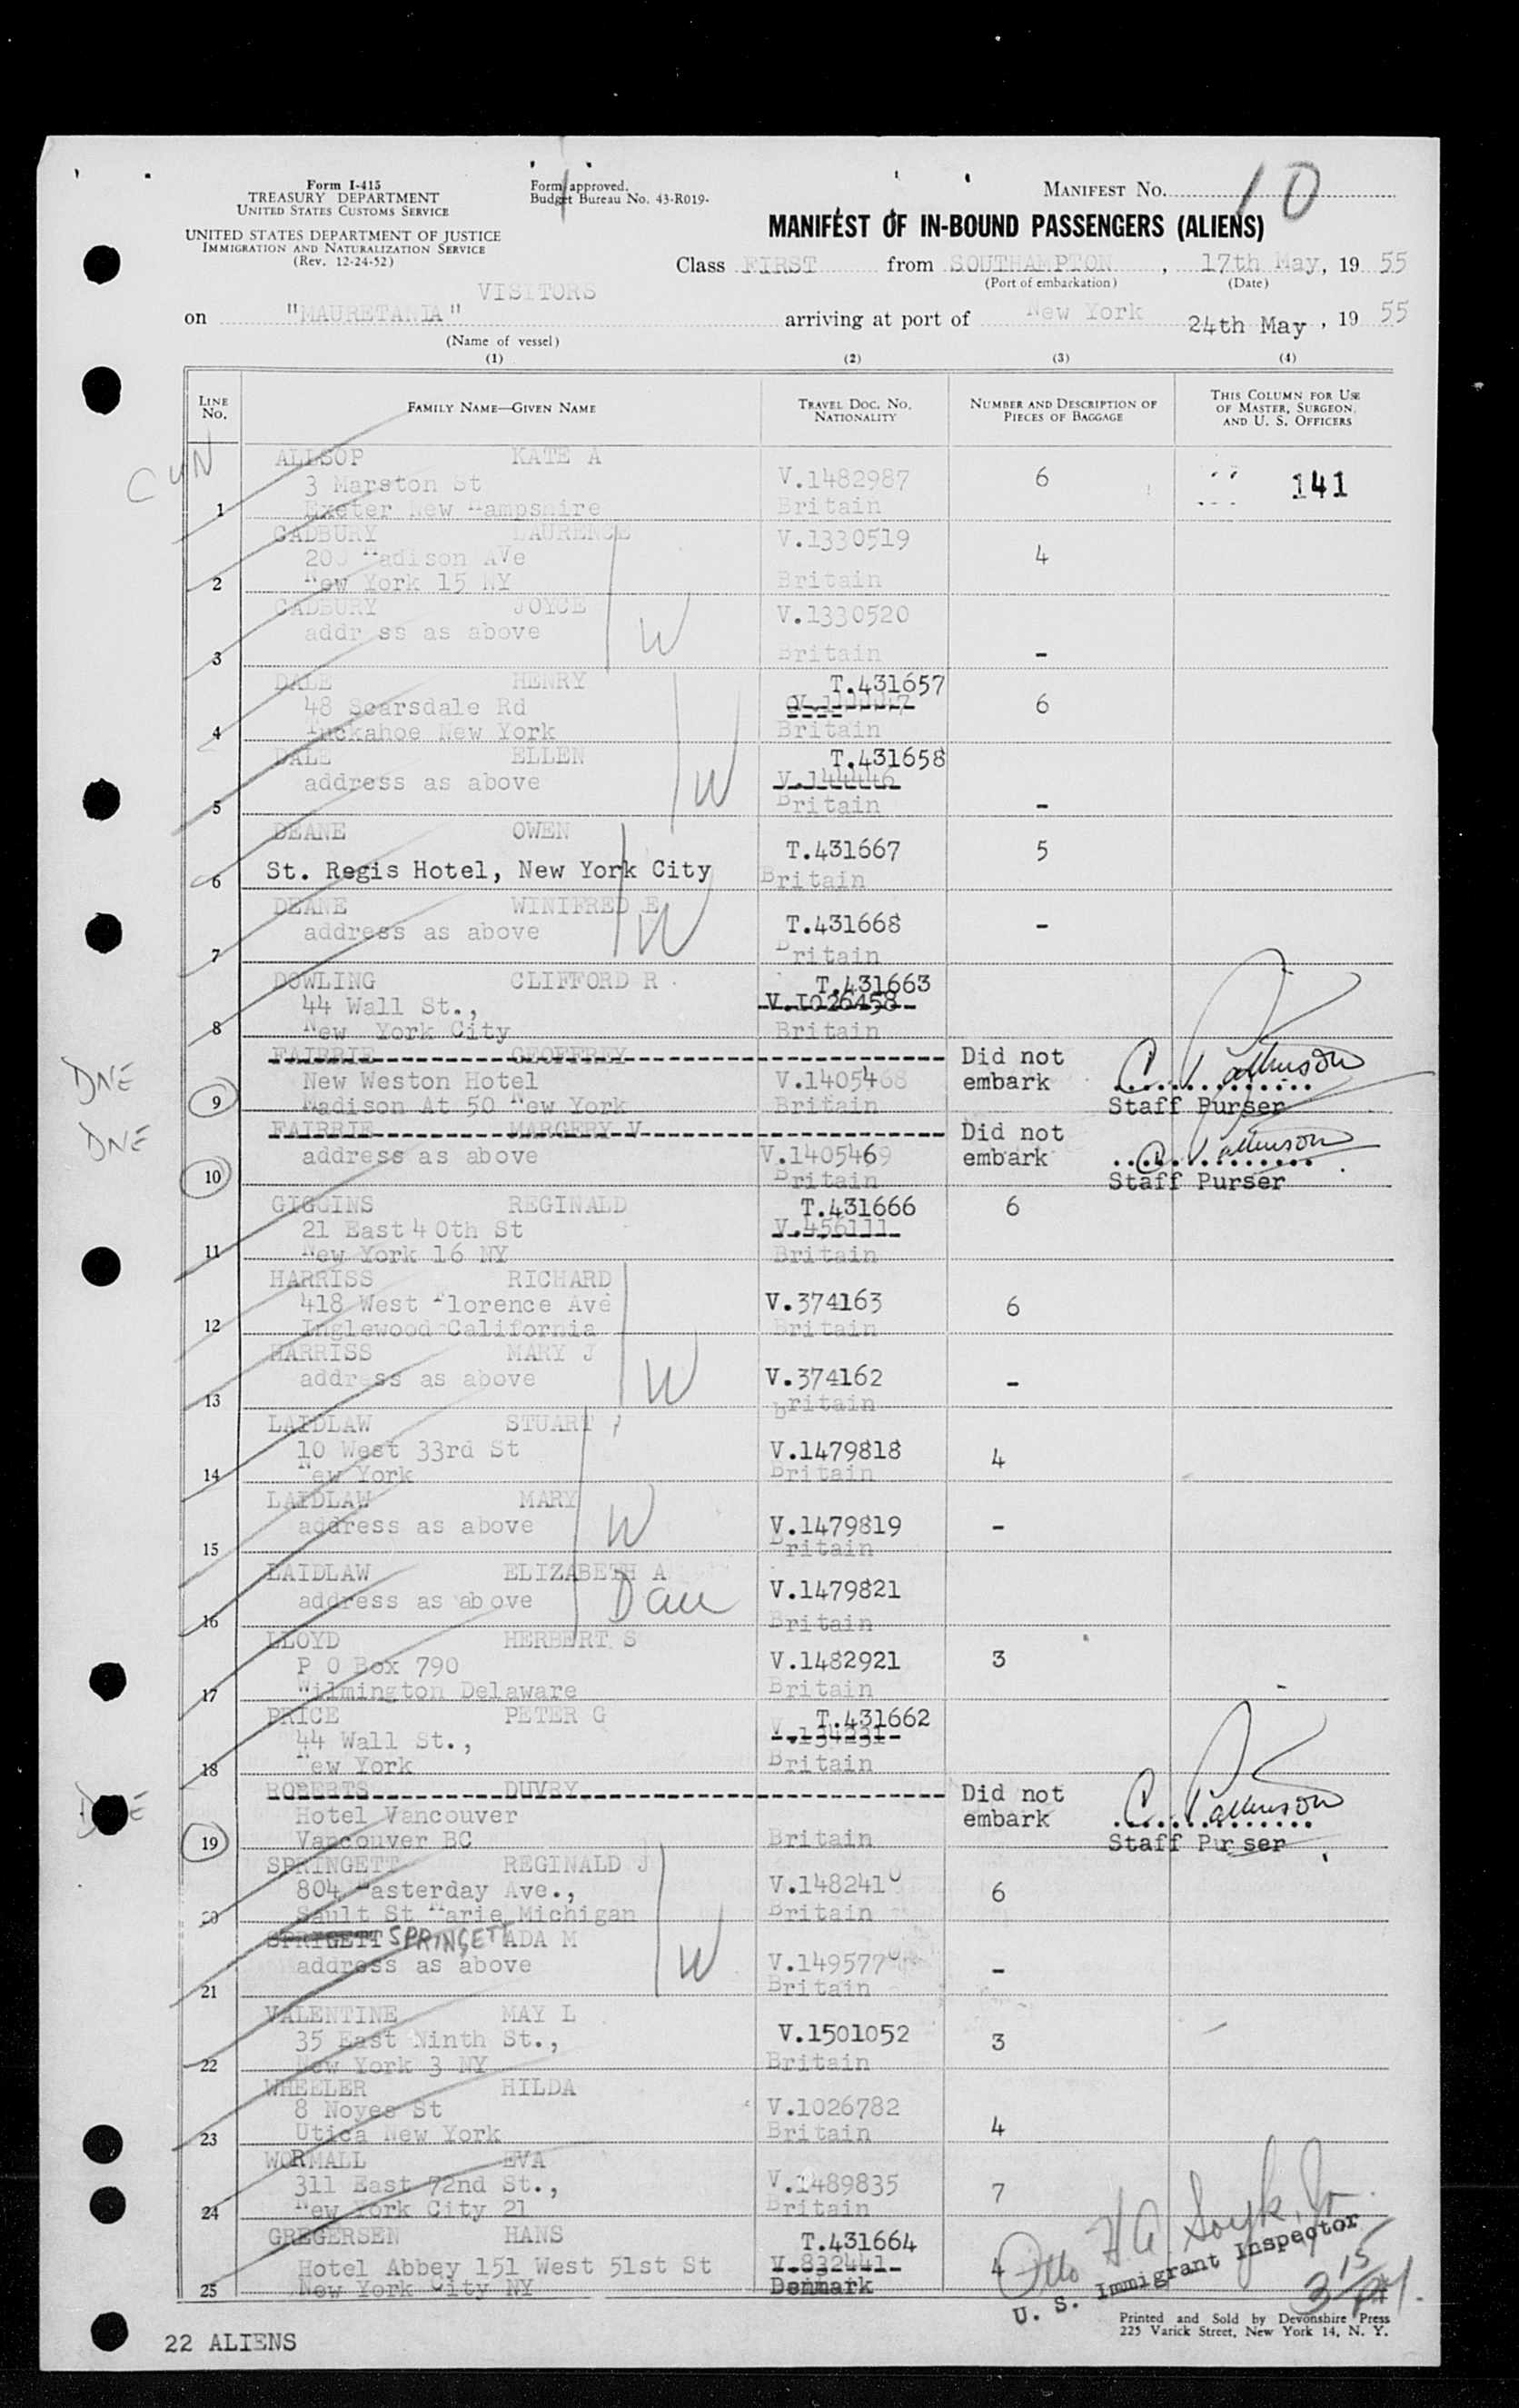 Form I-415
TREASURY DEPARTMENT
UNITED STATES CUSTOMS SERVICE
UNITED STATES DEPARTMENT OF JUSTICE
IMMIGRATION AND NATURALIZATION SERVICE
(Rev. 12-24-52)
Form approved.
Budget Bureau No. 43-R019-
MANIFEST No. 10
MANIFEST OF IN-BOUND PASSENGERS (ALIENS)
Class FIRST from SOUTHAMPTON, 17th May, 19 55
(Port of embarkation) (Date)
VISITORS
on "MAURETANIA" arriving at port of New York 24th May, 19 55
(Name of vessel)
(1) (2) (3) (4)
LINE No. FAMILY NAME—GIVEN NAME TRAVEL DOC. NO. NATIONALITY NUMBER AND DESCRIPTION OF PIECES OF BAGGAGE THIS COLUMN FOR USE OF MASTER, SURGEON, AND U. S. OFFICERS
ALLSOP KATE A
3 Marston St V.1482987 6 141
1 Exeter New Hampshire Britain
CADBURY LAURENCE V.1330519
200 Madison AVe 4
2 New York 15 NY Britain
CADBURY JOYCE V.1330520
addr ss as above W
3 Britain -
DALE HENRY T.431657
48 Scarsdale Rd 6
4 Tuckahoe New York Britain
DALE ELLEN T.431658
address as above W V.144446
5 Britain -
DEANE OWEN T.431667 5
6 St. Regis Hotel, New York City Britain
DEANE WINIFRED E T.431668 -
address as above W
7 Britain
DOWLING CLIFFORD R T.431663
44 Wall St., V.1026458
8 New York City Britain
FAIRRIE GEOFFREY Did not
DNE New Weston Hotel V.1405468 embark
9 Madison At 50 New York Britain Staff Purser
DNE FAIRRIE MARGERY V Did not
address as above V.1405469 embark
10 Britain Staff Purser
GIGGINS REGINALD T.431666 6
21 East 40th St V.456111
11 New York 16 NY Britain
HARRISS RICHARD
418 West Florence Ave V.374163 6
12 Inglewood California Britain
HARRISS MARY J
address as above W V.374162 -
13 Britain
LAIDLAW STUART
10 West 33rd St V.1479818 4
14 New York Britain
LAIDLAW MARY
address as above W V.1479819 -
15 Britain
LAIDLAW ELIZABETH A
address as above Dau V.1479821
16 Britain
LLOYD HERBERT S
P O Box 790 V.1482921 3
17 Wilmington Delaware Britain
PRICE PETER G T.431662
44 Wall St., V.134231
18 New York Britain
ROBERTS DUVRY Did not
Hotel Vancouver embark
19 Vancouver BC Britain Staff Purser
SPRINGETT REGINALD J
804 Easterday Ave., V.1482410 6
20 Sault St Marie Michigan Britain
SPRIGETT SPRINGETT ADA M
address as above W V.1495770 -
21 Britain
VALENTINE MAY L
35 East Ninth St., V.1501052 3
22 New York 3 NY Britain
WHEELER HILDA
8 Noyes St V.1026782 4
23 Utica New York Britain
WORMALL EVA
311 East 72nd St., V.1489835 7
24 New York City 21 Britain
GREGERSEN HANS T.431664
Hotel Abbey 151 West 51st St V.832441 4
25 New York City NY Denmark
U. S. Immigrant Inspector
3 15 PM
Printed and Sold by Devonshire Press
225 Varick Street, New York 14, N. Y.
22 ALIENS